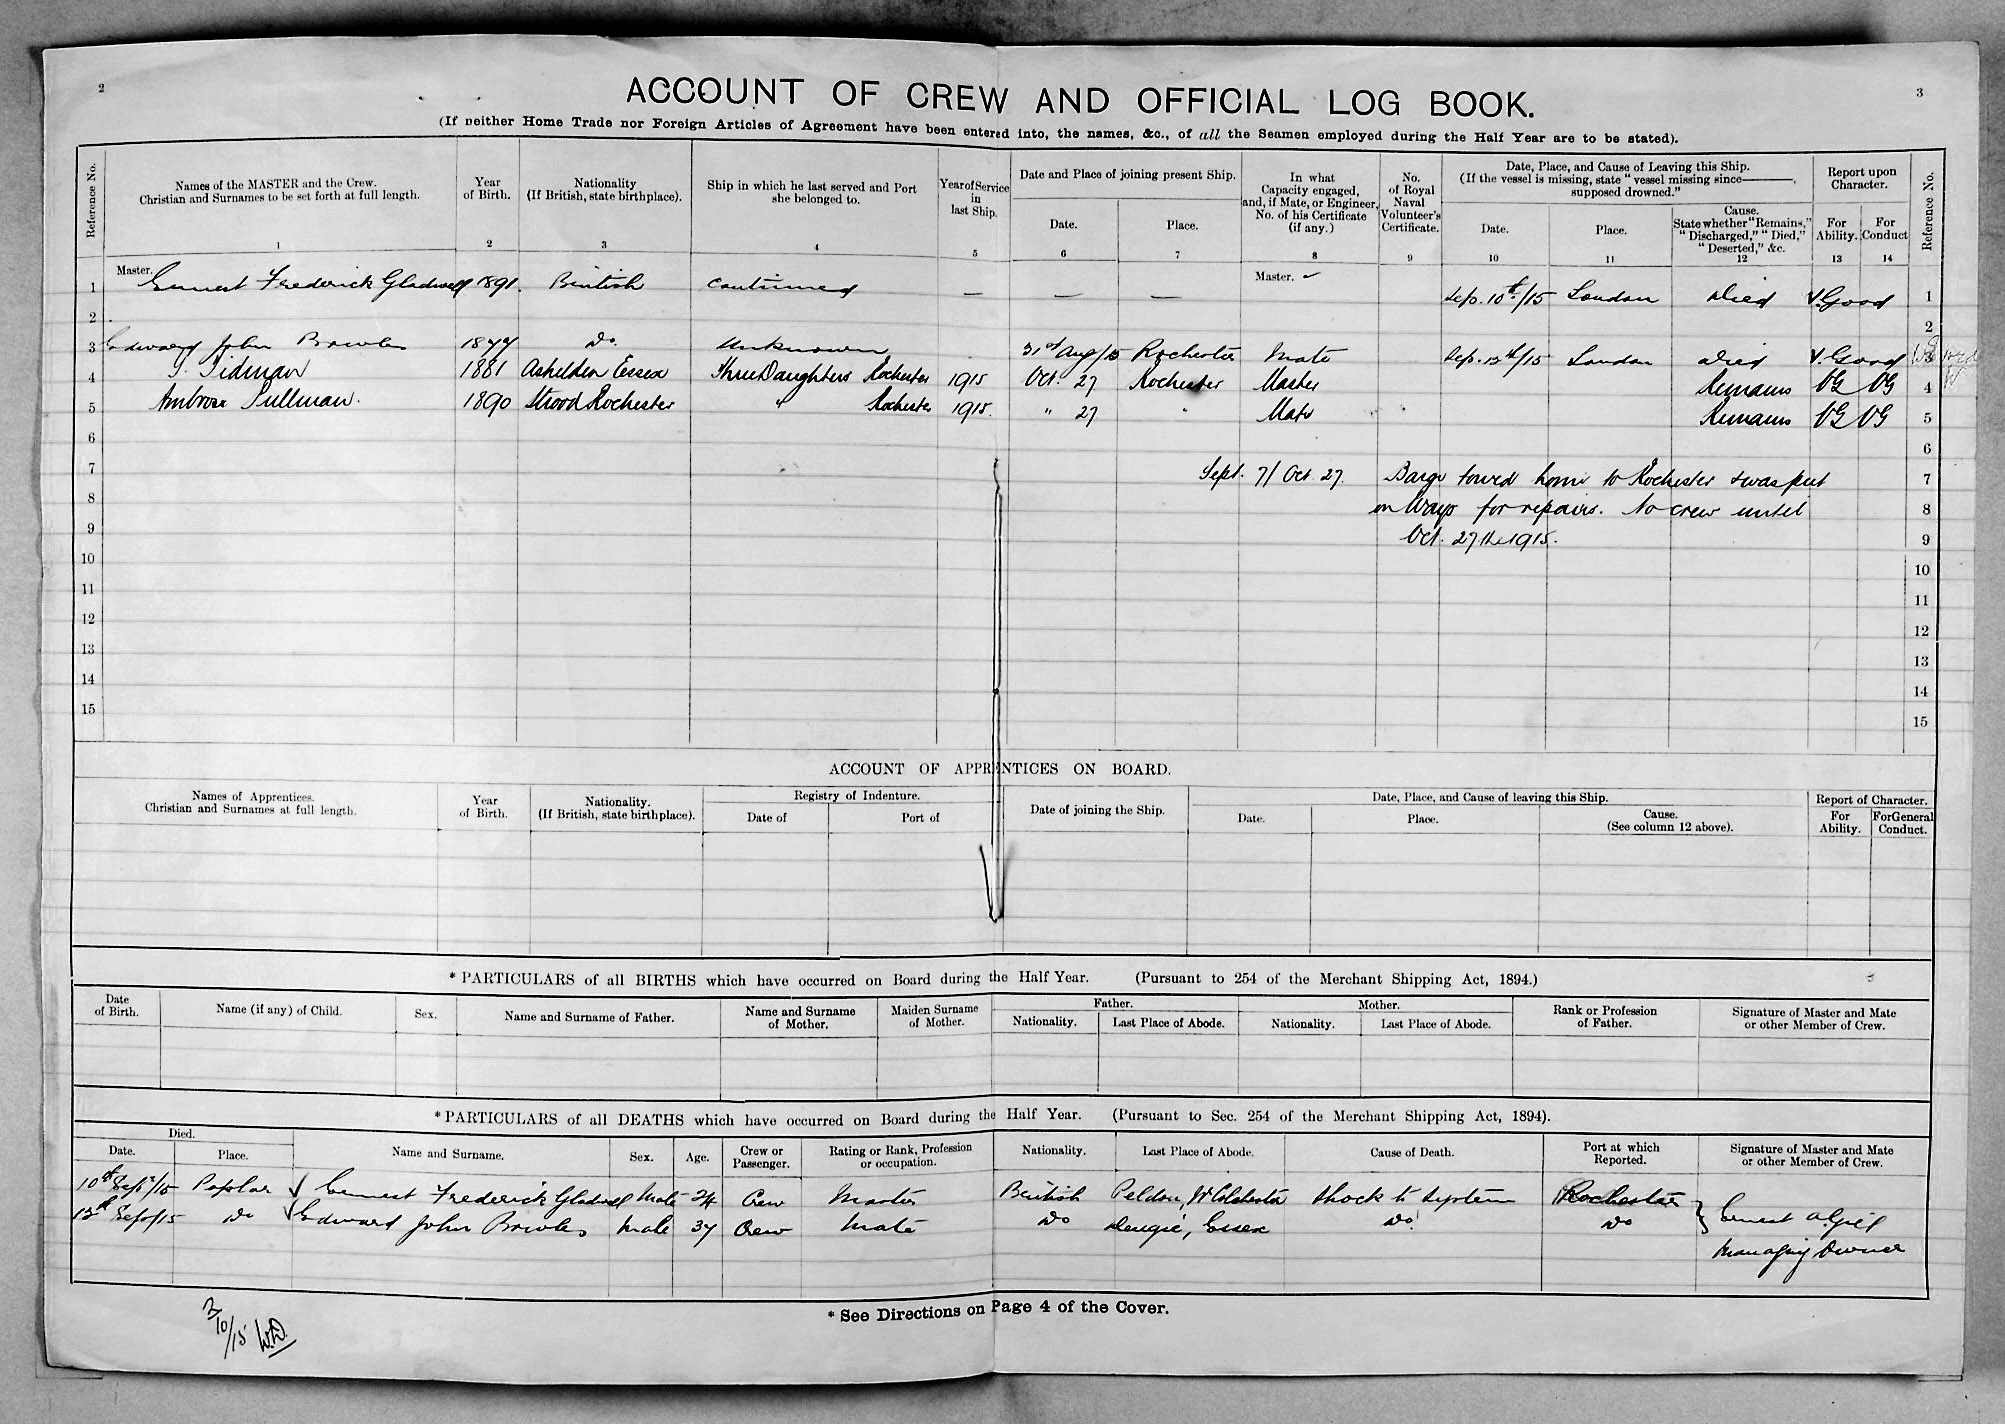 2
3
ACCOUNT OF CREW AND OFFICIAL LOG BOOK.
(If neither Home Trade nor Foreign Articles of Agreement have been entered into, the names, &c., of all the Seamen employed during the Half Year are to be stated).
Reference No. Names of the MASTER and the Crew. Christian and Surnames to be set forth at full length. Year of Birth. Nationality (If British, state birthplace). Ship in which he last served and Port she belonged to. Year of Service in last Ship. Date and Place of joining present Ship. Date. Place. In what Capacity engaged, and, if Mate, or Engineer, No. of his Certificate (if any.) No. of Royal Naval Volunteer's Certificate. Date, Place, and Cause of Leaving this Ship. (If the vessel is missing, state "vessel missing since———, supposed drowned." Date. Place. Cause. State whether "Remains," "Discharged," "Died," "Deserted," &c. Report upon Character. For Ability. For Conduct Reference No.
1 2 3 4 5 6 7 8 9 10 11 12 13 14
1 Master. Ernest Frederick Gladwell 1891. British continued — — — Master. Sep. 10th/15 London Died V.Good 1
2 2
3 Edward John Bowles Do. Unknown 31st Aug/15 Rochester Mate Sep. 12th/15 London Died V.Good 3
4 T. Tidman 1881 Asheldon Essex Three Daughters Rochester 1915 Oct. 27 Rochester Master Remains VG VG 4
5 Ambrose Pullman. 1890 Strood Rochester " Rochester 1915. " 27 " Mate Remains VG VG 5
6 6
7 Sept. 7/ Oct 27. Barge towed home to Rochester & was put 7
8 on Ways for repairs. No crew until 8
9 Oct. 27th 1915. 9
10 10
11 11
12 12
13 13
14 14
15 15
ACCOUNT OF APPRENTICES ON BOARD.
Names of Apprentices. Christian and Surnames at full length. Year of Birth. Nationality. (If British, state birthplace). Registry of Indenture. Date of Port of Date of joining the Ship. Date, Place, and Cause of leaving this Ship. Date. Place. Cause. (See column 12 above). Report of Character. For Ability. For General Conduct.
* PARTICULARS of all BIRTHS which have occurred on Board during the Half Year. (Pursuant to 254 of the Merchant Shipping Act, 1894.)
Date of Birth. Name (if any) of Child. Sex. Name and Surname of Father. Name and Surname of Mother. Maiden Surname of Mother. Father. Nationality. Last Place of Abode. Mother. Nationality. Last Place of Abode. Rank or Profession of Father. Signature of Master and Mate or other Member of Crew.
* PARTICULARS of all DEATHS which have occurred on Board during the Half Year. (Pursuant to Sec. 254 of the Merchant Shipping Act, 1894).
Died. Date. Place. Name and Surname. Sex. Age. Crew or Passenger. Rating or Rank, Profession or occupation. Nationality. Last Place of Abode. Cause of Death. Port at which Reported. Signature of Master and Mate or other Member of Crew.
10th Sept/15 Poplar Ernest Frederick Gladwell Male 24 Crew Master British Peldon, Nr Colchester Shock to system Rochester
12th Sept/15 Do Edward John Bowles Male 37 Crew Mate Do Dengie, Essex Do Do Ernest A Gill
Managing Owner
* See Directions on Page 4 of the Cover.
2/10/15 W.D.